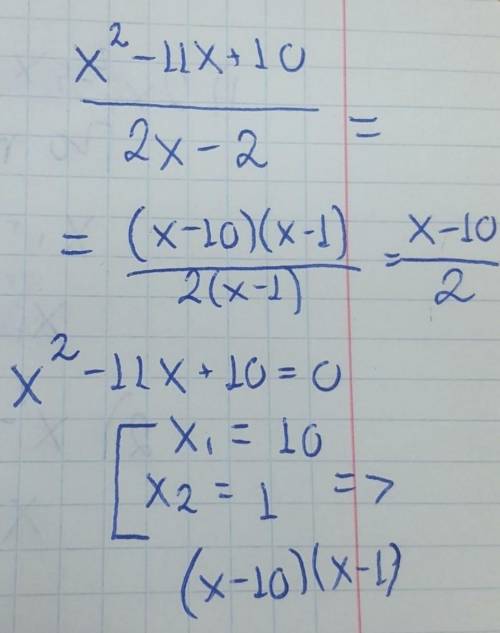 x² - 11x + 10
2x - 2 =
= (x-10)(x-1) = x-10
2(x-1) 2
x² - 11x + 10 = 0
x₁ = 10
x₂ = 1 =>
(x-10)(x-1)